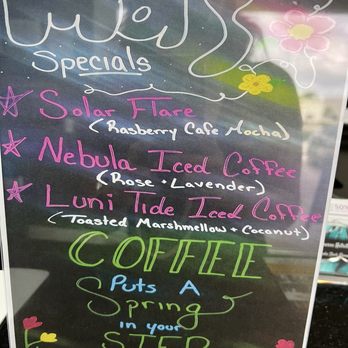 Specials
Solar Flare
(Rasberry Cafe Mocha)
Nebula Iced Coffee
(Rose + Lavender)
Luni Tide Iced Coffee
(Toasted Marshmellow + Coconut)
COFFEE
Puts A
Spring
in your
STEP